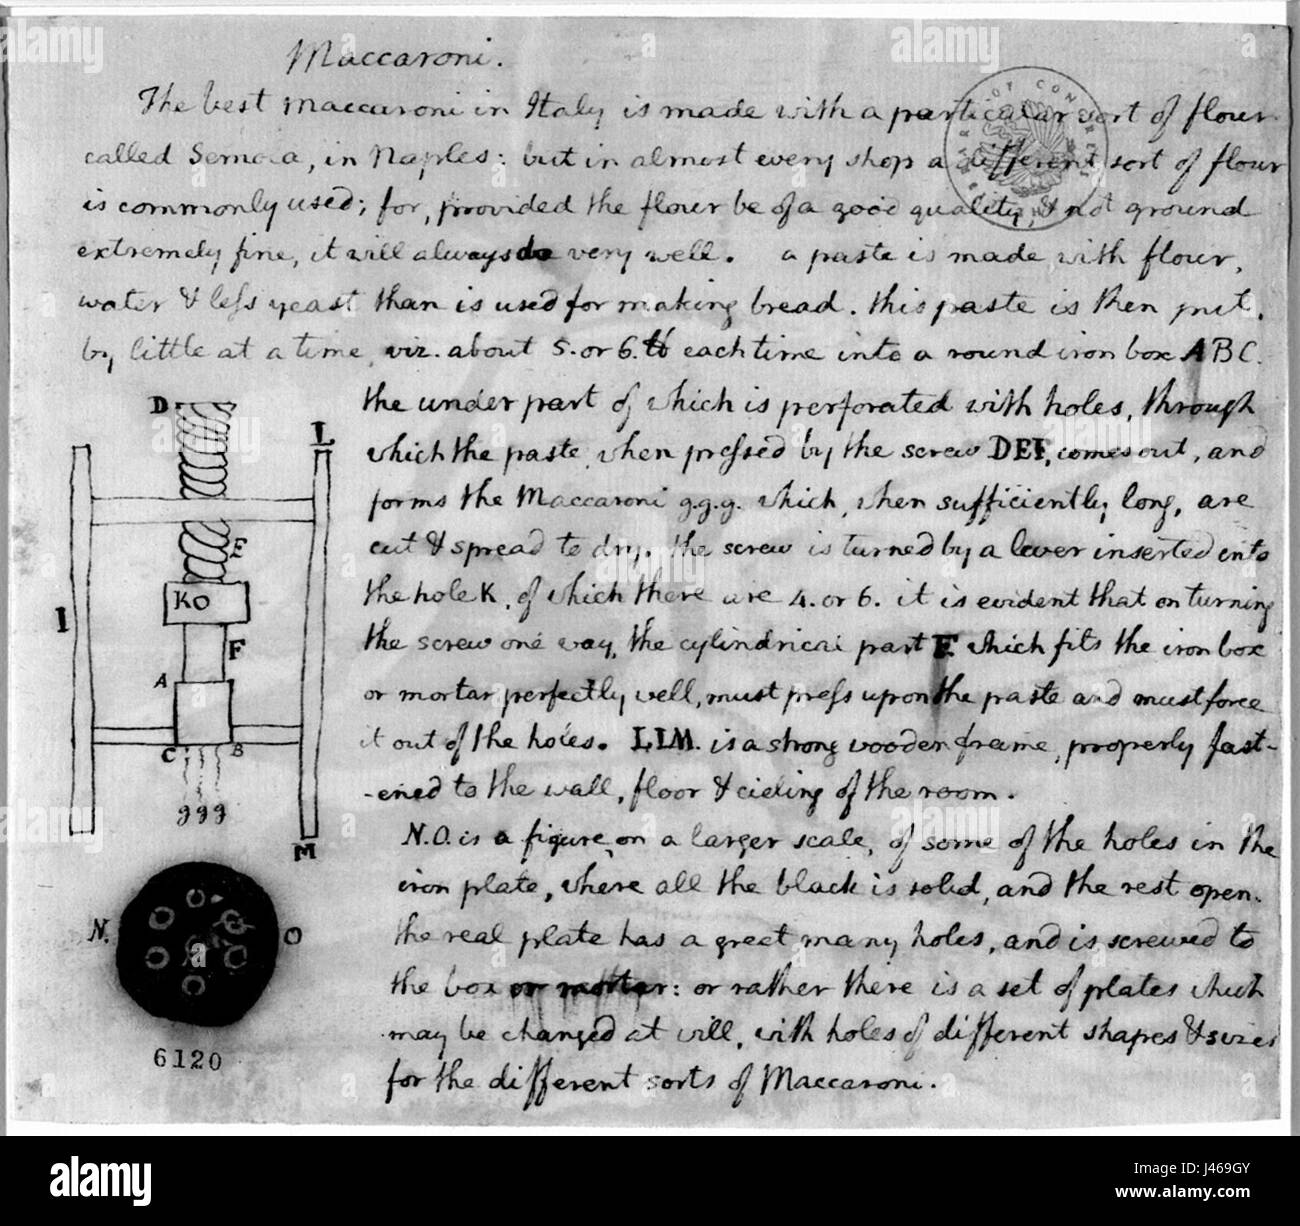 Maccaroni.
The best maccaroni in Italy is made with a particular sort of flour
called Semola, in Naples: but in almost every shop a different sort of flour
is commonly used; for, provided the flour be of a good quality, & not ground
extremely fine, it will always do very well. a paste is made with flour,
water & less yeast than is used for making bread. this paste is then put,
by little at a time, viz. about 5. or 6. ℔ each time into a round iron box ABC.
the under part of which is perforated with holes, through
which the paste, when pressed by the screw DEF, comes out, and
forms the Maccaroni g.g.g. which, when sufficiently long, are
cut & spread to dry. the screw is turned by a lever inserted into
the hole K, of which there are 4. or 6. it is evident that on turning
the screw one way, the cylindrical part F which fits the iron box
or mortar perfectly well, must press upon the paste and must force
it out of the holes. LIM. is a strong wooden frame, properly fast-
-ened to the wall, floor & cieling of the room.
N.O. is a figure, on a larger scale, of some of the holes in the
iron plate, where all the black is solid, and the rest open.
the real plate has a great many holes, and is screwed to
the box or mortar: or rather there is a set of plates which
may be changed at will, with holes of different shapes & sizes
for the different sorts of Maccaroni.
D
L
E
I
KO
F
A
C B
ggg
M
N. O
6120
alamy
alamy
Image ID: J469GY
www.alamy.com